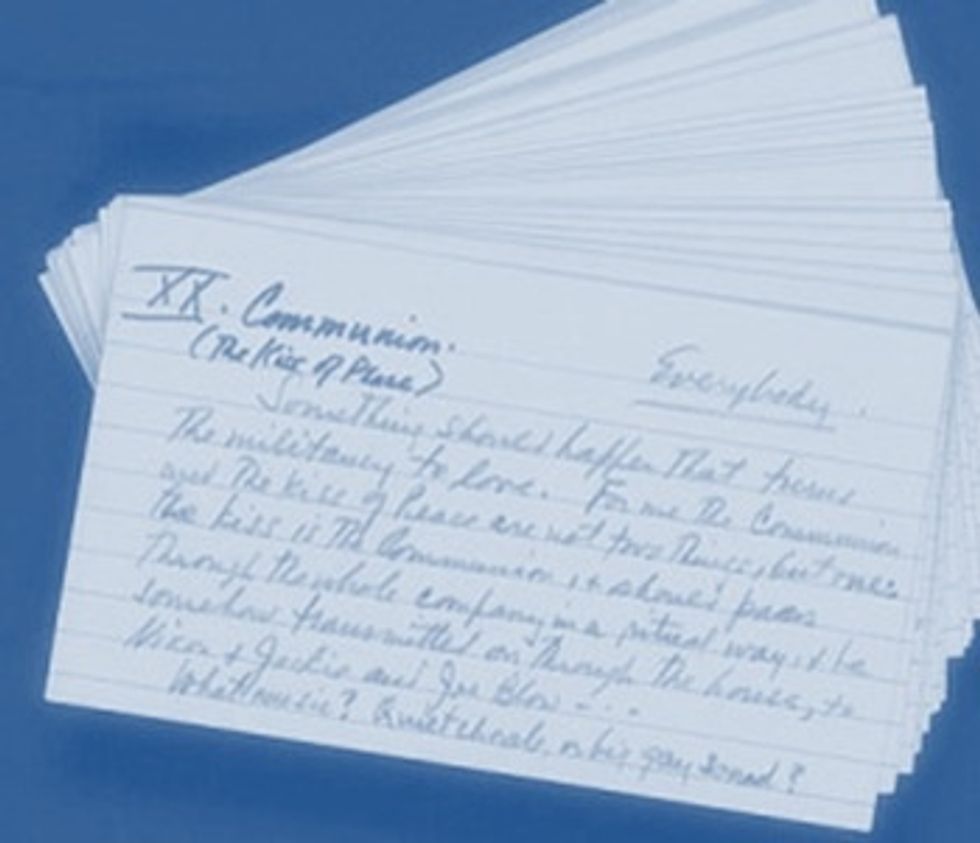 XX. Communion.
(The Kiss of Peace)
Everybody.
Something should happen that turns
The militancy to love. For me the Communion
and the Kiss of Peace are not two things, but one:
the kiss is the Communion, & should pass
Through the whole company in a ritual way, & be
somehow transmitted on through the house, to
Nixon & Jackie and Joe Blow - . . .
What music? Quiet chorale, or big gay sound?